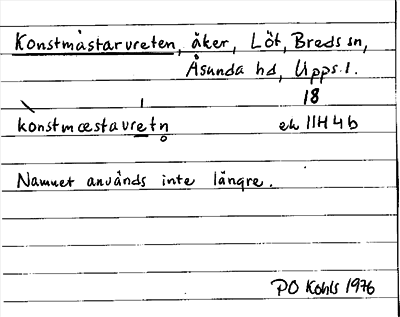 Konstmästarvreten, åker, Löt, Breds sn,
Åsunda hd, Upps. l.
18
konstmæstavretn̥ ek 11H4b
Namnet används inte längre.
PO Kohls 1976